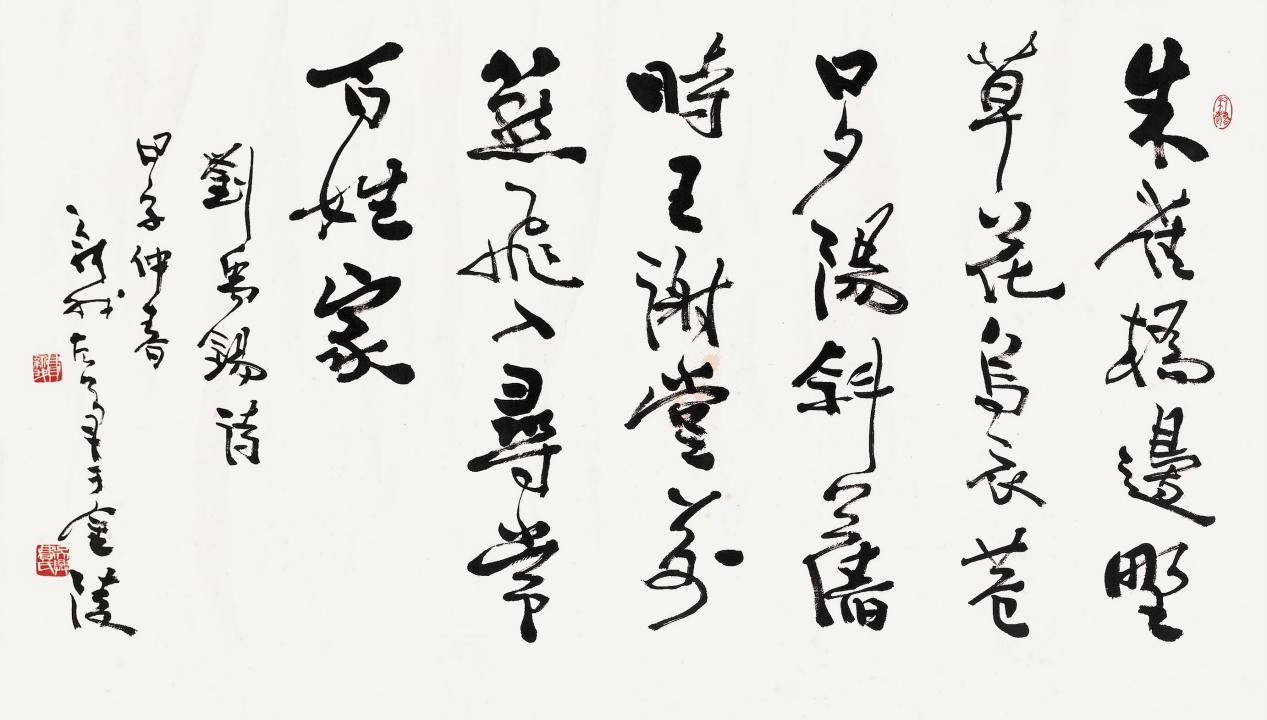 朱雀橋邊野
草花烏衣巷
口夕陽斜舊
時王謝堂前
燕飛入尋常
百姓家
劉禹錫詩
甲子仲春
新我左筆于金陵